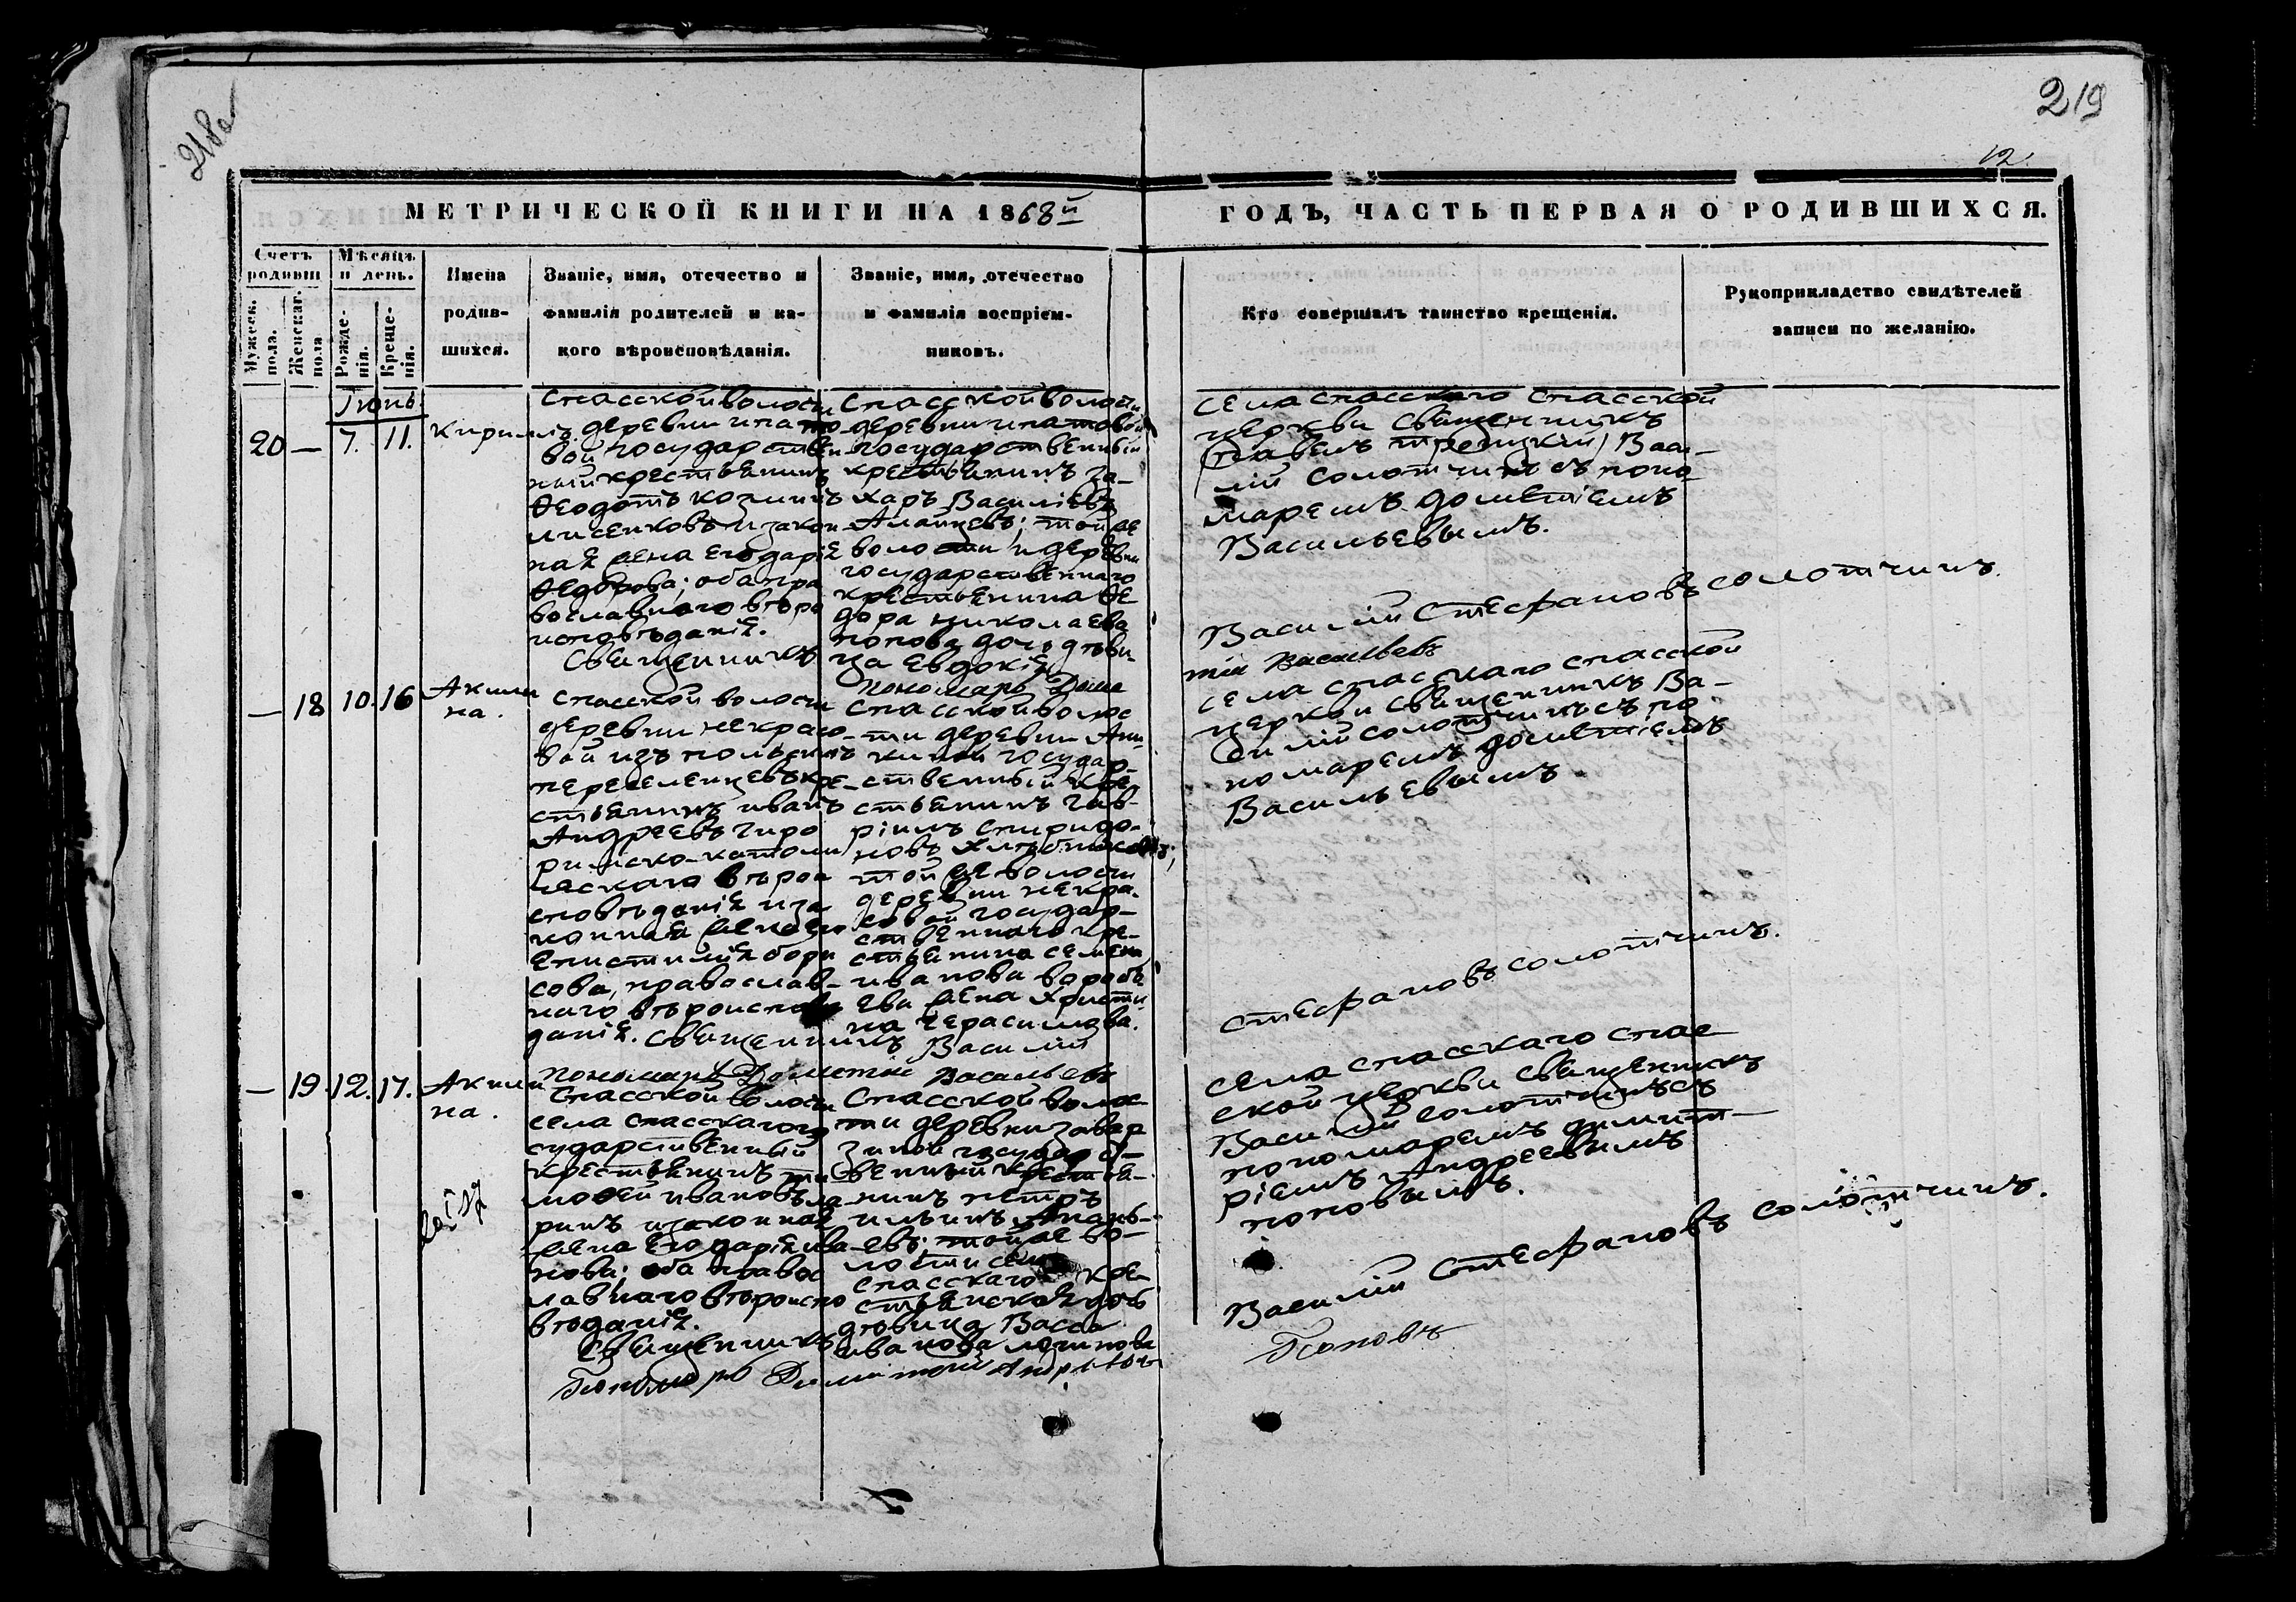 219
12.
МЕТРИЧЕСКОЙ КНИГИ НА 1868й
ГОДЪ, ЧАСТЬ ПЕРВАЯ О РОДИВШИХСЯ.
Счетъ родивш
Мужеск. пола.
Женскаг. пола.
Мѣсяцъ и день.
Рожде-
нія.
Креще-
нія.
Имена
родив-
шихся.
Званіе, имя, отечество и
фамилія родителей и ка-
кого вѣроисповѣданія.
Званіе, имя, отечество
и фамилія воспріем-
никовъ.
Кто совершалъ таинство крещенія.
Рукоприкладство свидѣтелей
записи по желанію.
Іюнь
20 — 7. 11.
Кириллъ.
Спасской волости
деревни Ипато-
вой государствен
ный крестьянинъ
Ѳеодотъ Козминъ
Лисенковъ и закон
ная жена его Дарія
Ѳедорова; оба пра
вославнаго вѣро
исповѣданія.
Священникъ
Спасской волости
деревни Ипатовой
государственный
крестьянинъ За-
харъ Василіевъ
той же
волости и деревни
государственнаго
крестьянина Ѳе
дора Николаева
Попова дочь дѣви-
ца Евдокія
Пономарь Доме
села Спасскаго Спасской
церкви священникъ
Васи-
лій Солотчинъ съ поно-
маремъ Дометіемъ
Васильевымъ.
Василій Стефановъ Солотчинъ.
тій Васильевъ
— 18 10. 16
Акили
на.
Спасской волости
деревни Некрасо-
вой изъ польскихъ
переселенцевъ кре-
стьянинъ Иванъ
Андреевъ
римско-католи
ческаго вѣрои
сповѣданія и за
конная жена его
Епистимія Бори
сова, православ-
наго вѣроисповѣ
данія. Священникъ Василій
Спасской волос
ти деревни Ани
киной государ-
ственный кре-
стьянинъ Гав-
ріилъ Спиридо-
новъ Хлѣбниковъ;
той же волости
деревни Некра-
совой государ-
ственнаго кре-
стьянина Семена
Иванова Воробь
ева жена Христи
на Герасимова.
села Спасскаго Спасской
церкви священникъ Ва-
силій Солотчинъ съ по
номаремъ Дометіемъ
Васильевымъ.
Стефановъ Солотчинъ.
Пономарь Дометій Васильевъ
— 19. 12. 17.
Акили
на.
Спасской волости
села Спасскаго го
сударственный
крестьянинъ Ти
моѳей Ивановъ Ла
ринъ и законная
жена его Дарія Ива
нова; оба правос
лавнаго вѣроиспо
вѣданія.
Священникъ
Спасской волос
ти деревни Завар
зиной государст
венный крестья-
нинъ Петръ
Ильинъ Анань-
евъ; той же во-
лости села
Спасскаго кре-
стьянская дочь
дѣвица Васса
Иванова Логинова
села Спасскаго Спас
ской церкви священникъ
Василій Солотчинъ съ
пономаремъ Димит-
ріемъ Андреевымъ
Поповымъ.
Василій Стефановъ Солотчинъ.
Пономарь Димитрій Андреевъ
Поповъ